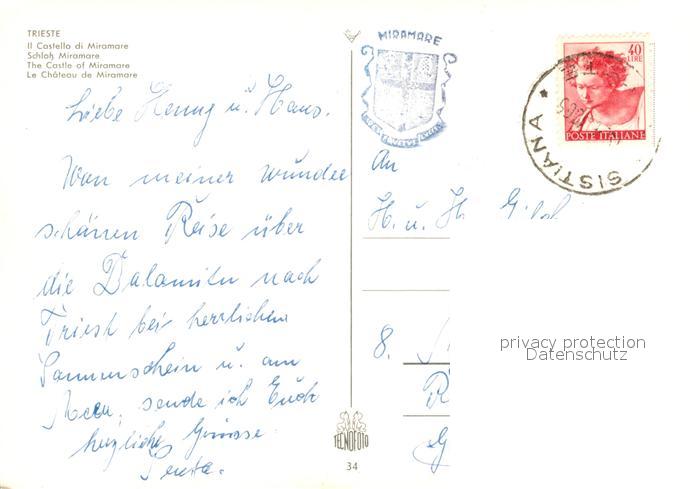 TRIESTE
Il Castello di Miramare
Schloß Miramare
The Castle of Miramare
Le Château de Miramare
MIRAMARE
40
LIRE
POSTE ITALIANE
SISTIANA
Liebe Henny u. Hans.
Von meiner wunder
schönen Reise über
die Dolomiten nach
Triest bei herrlichem
Sonnenschein u. am
Meer, sende ich Euch
herzliche Grüsse
An
H. u. H
8.
privacy protection
Datenschutz
TECNOFOTO
34